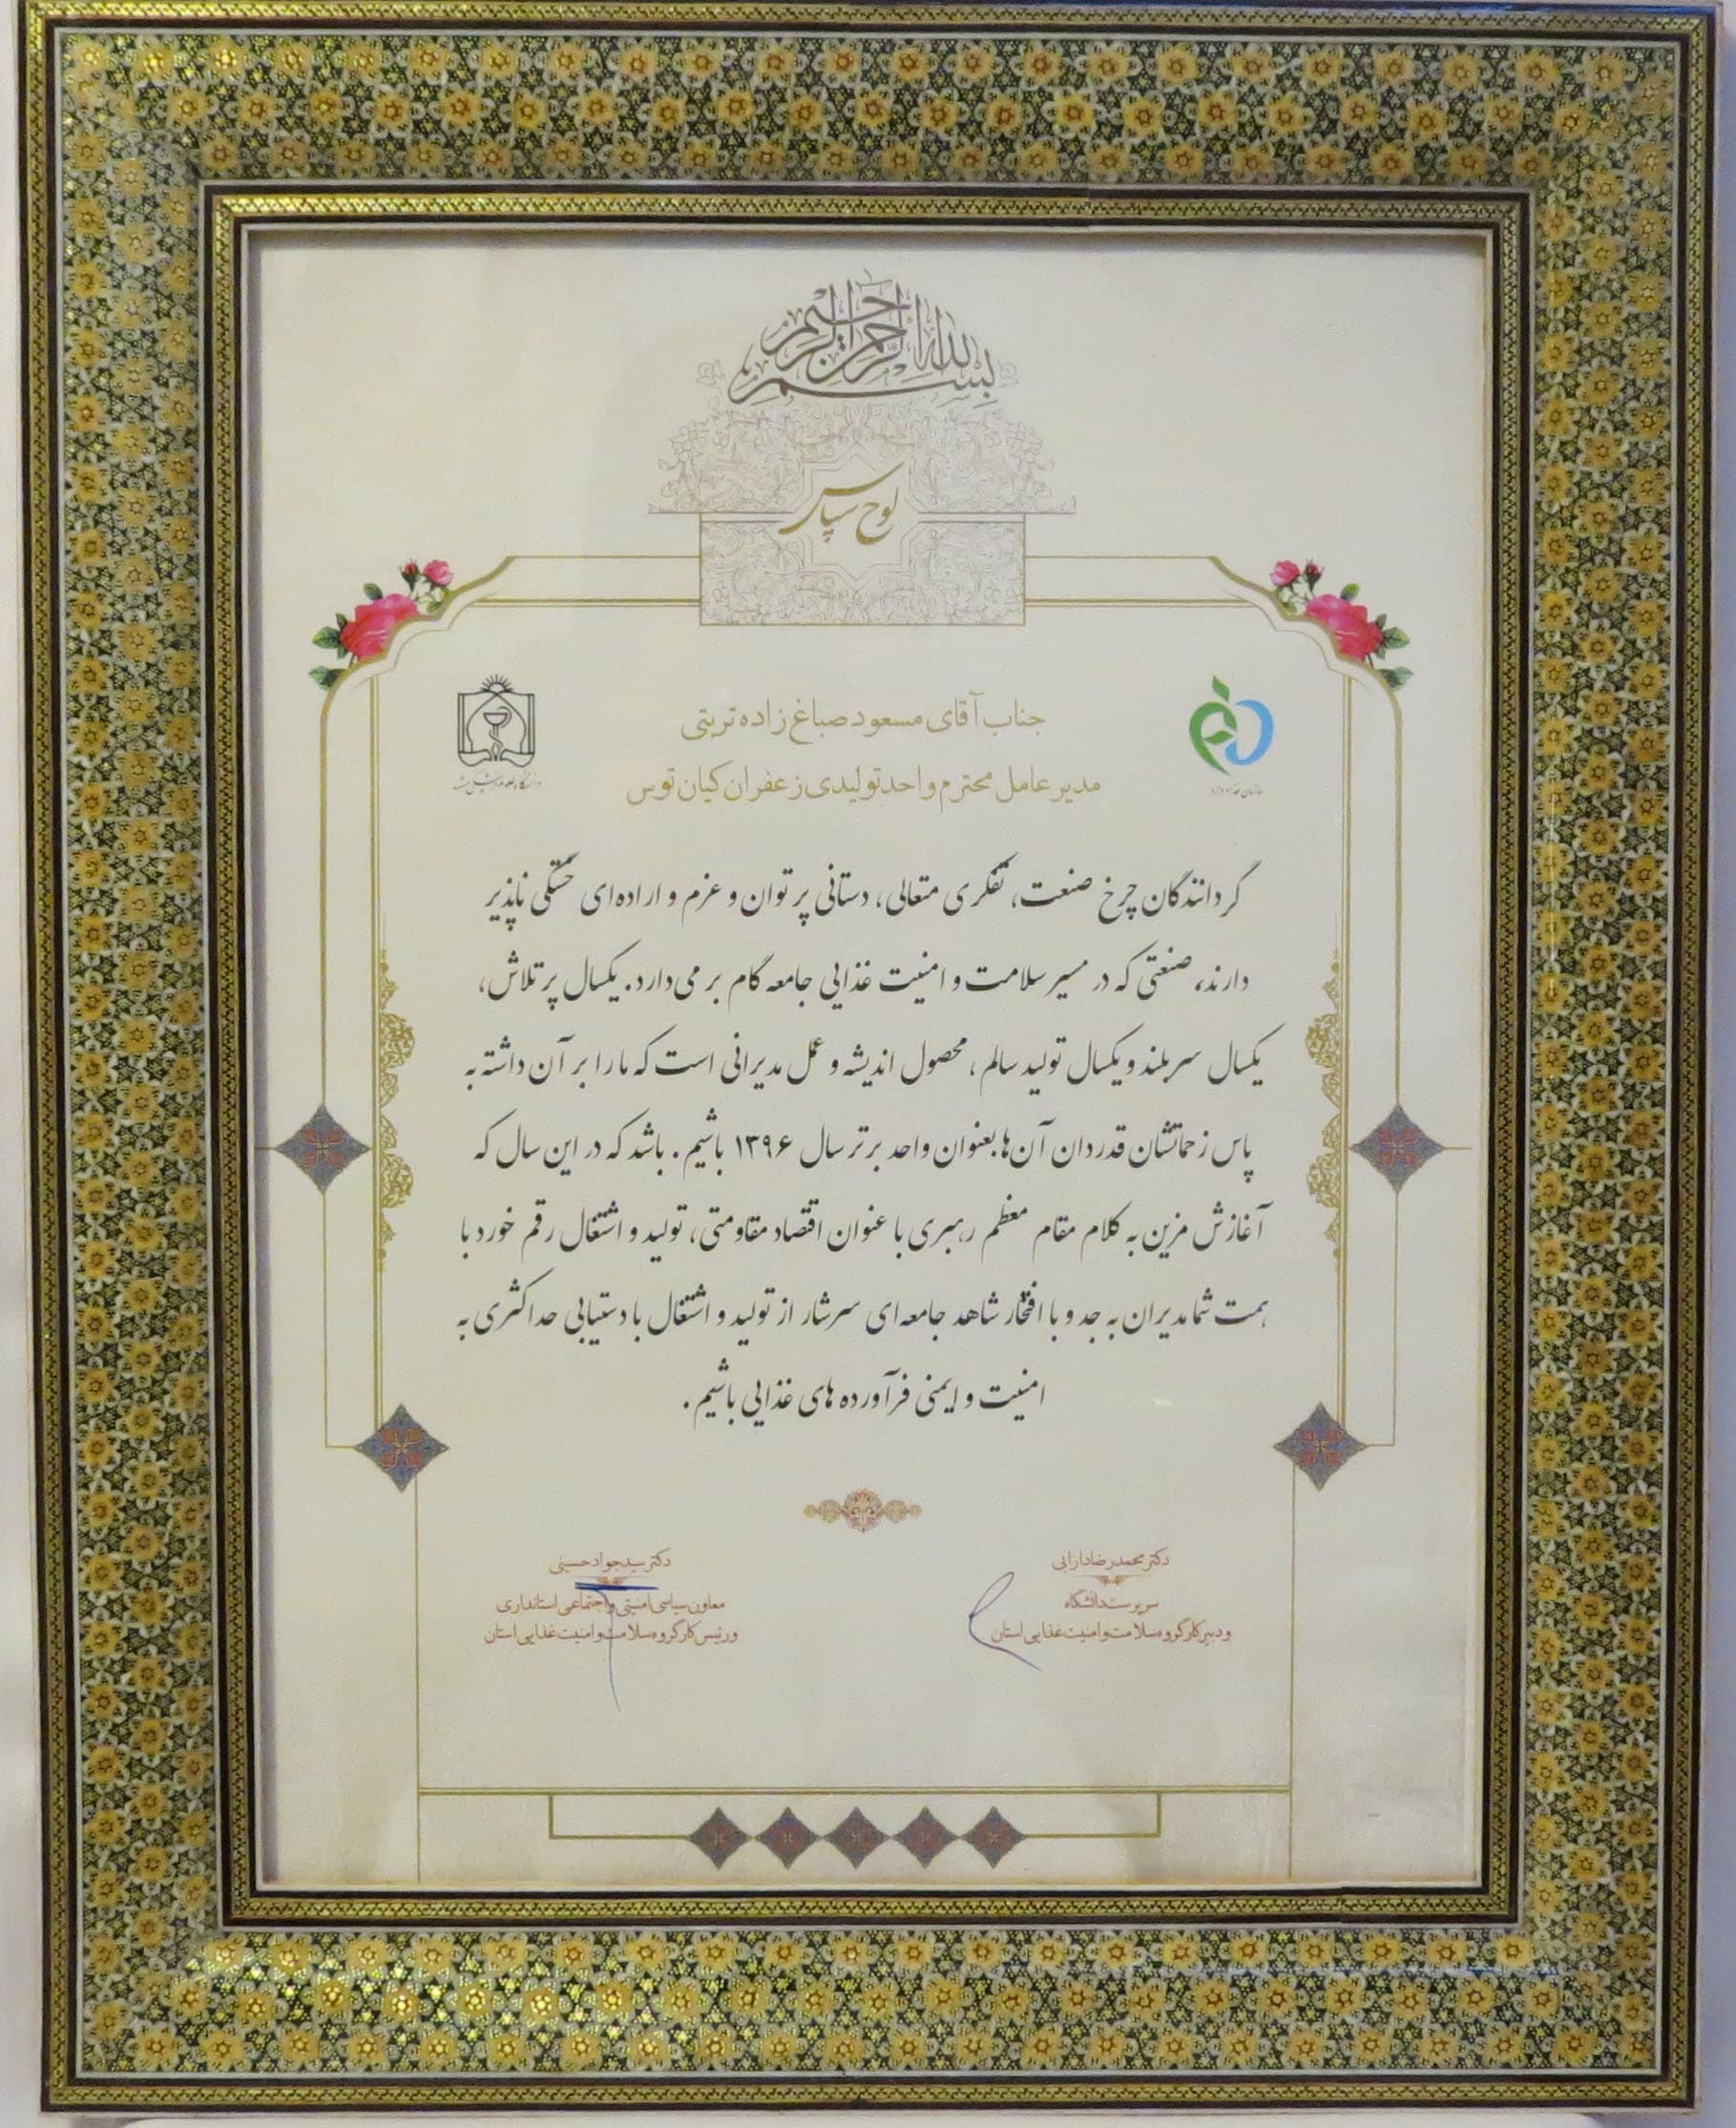 بسم الله الرحمن الرحیم
لوح سپاس
جناب آقای مسعود صباغ زاده تربتی
مدیر عامل محترم واحد تولیدی زعفران کیان توس
سازمان غذا و دارو
دانشگاه علوم پزشکی مشهد
گردانندگان چرخ صنعت، تفکری متعالی، دستانی پر توان و عزم و اراده‌ای خستگی ناپذیر
دارند، صنعتی که در مسیر سلامت و امنیت غذایی جامعه گام بر می‌دارد. یکسال پر تلاش،
یکسال سربلند و یکسال تولید سالم، محصول اندیشه و عمل مدیرانی است که ما را بر آن داشته به
پاس زحماتشان قدردان آن‌ها بعنوان واحد برتر سال ۱۳۹۶ باشیم. باشد که در این سال که
آغازش مزین به کلام مقام معظم رهبری با عنوان اقتصاد مقاومتی، تولید و اشتغال رقم خورد با
همت شما مدیران به جد و با افتخار شاهد جامعه‌ای سرشار از تولید و اشتغال با دستیابی حداکثری به
امنیت و ایمنی فرآورده های غذایی باشیم.
دکتر محمدرضا دارابی
سرپرست دانشگاه
و دبیر کارگروه سلامت و امنیت غذایی استان
دکتر سیدجواد حسینی
معاون سیاسی امنیتی و اجتماعی استانداری
و رئیس کارگروه سلامت و امنیت غذایی استان